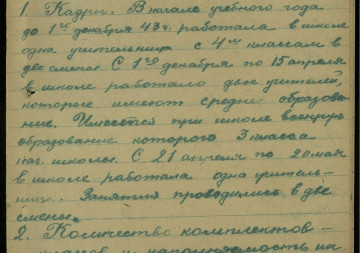 1. Кадры. В начале учебного года
до 1го декабря 43г. работала в школе
одна учительница с 4мя классам в
две смены. С 1го декабря по 15 апреля
в школе работало двое учителей,
которые имеют средне образова-
ние. Имеется при школе военрук
образование которого 3 класса
нач. школы. С 21 апреля по 20 мая
в школе работала одна учитель-
ница. Занятия проводились в две
смены.
2. Количество комплектов-
классов и наполняемость их